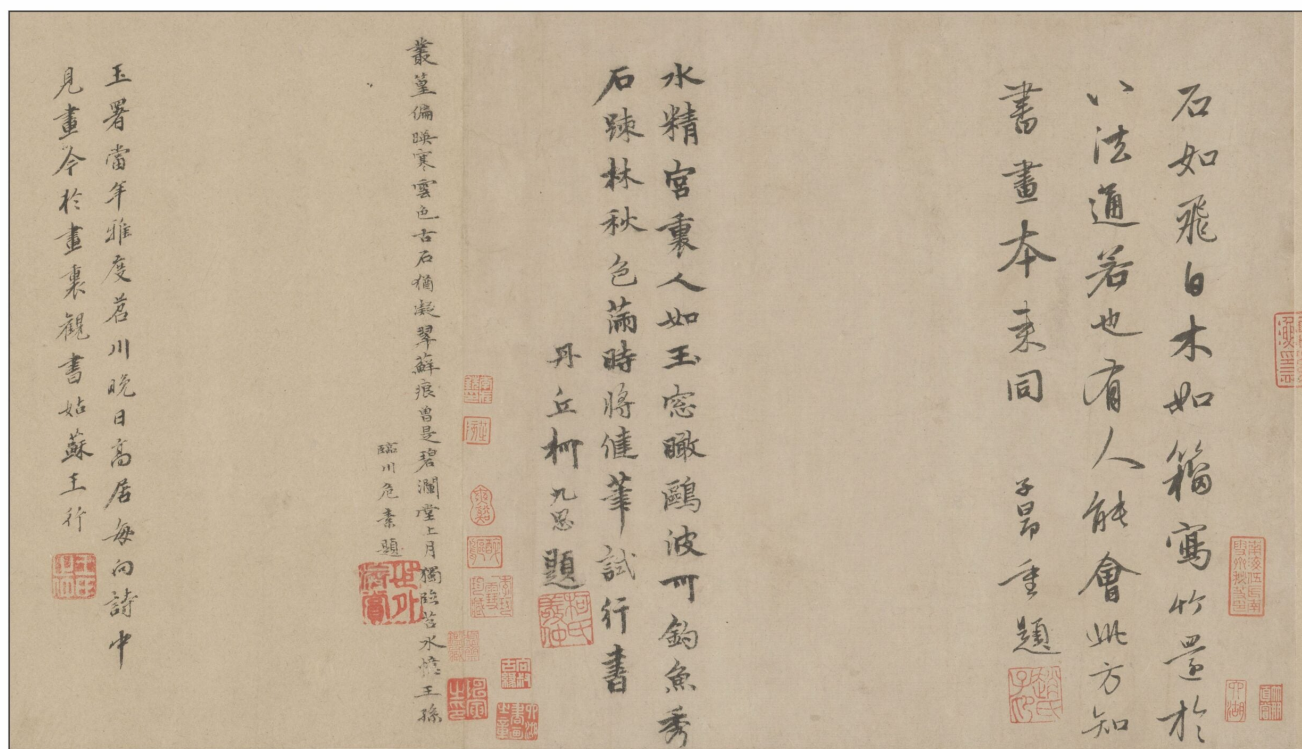 石如飛白木如籀寫竹還於
八法通若也有人能會此方知
書畫本來同 子昂重題
水精宮裏人如玉窓瞰鷗波可釣魚秀
石疎林秋色滿時將健筆試行書
丹丘柯九思題
叢篁偏暎寒雲色古石猶凝翠蘚痕曾是碧瀾堂上月獨臨苕水憶王孫
臨川危素題
玉署當年雅度苕川晚日高居每向詩中
見畫今於畫裏觀書姑蘇王行